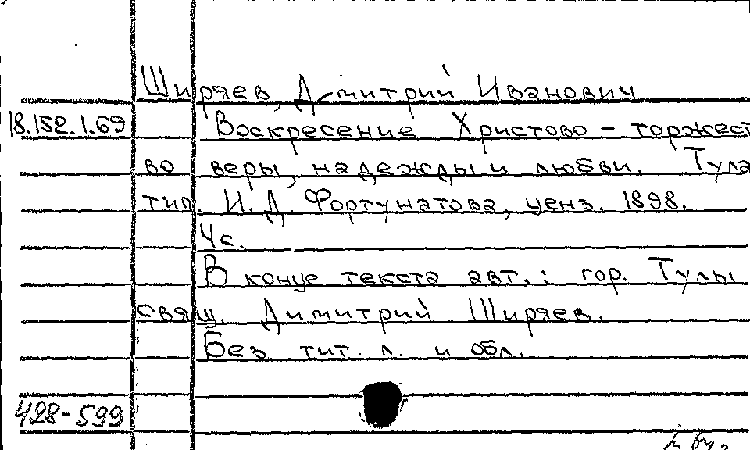 Ширяев, Дмитрий Иванович
18.152.1.69 Воскресение Христово – торжест
во веры, надежды и любви. Тула
тип. И.Д. Фортунатова, ценз. 1898.
4 с.
В конце текста авт.: гор. Тулы
свящ. Димитрий Ширяев.
Без тит. л. и обл.
428-599